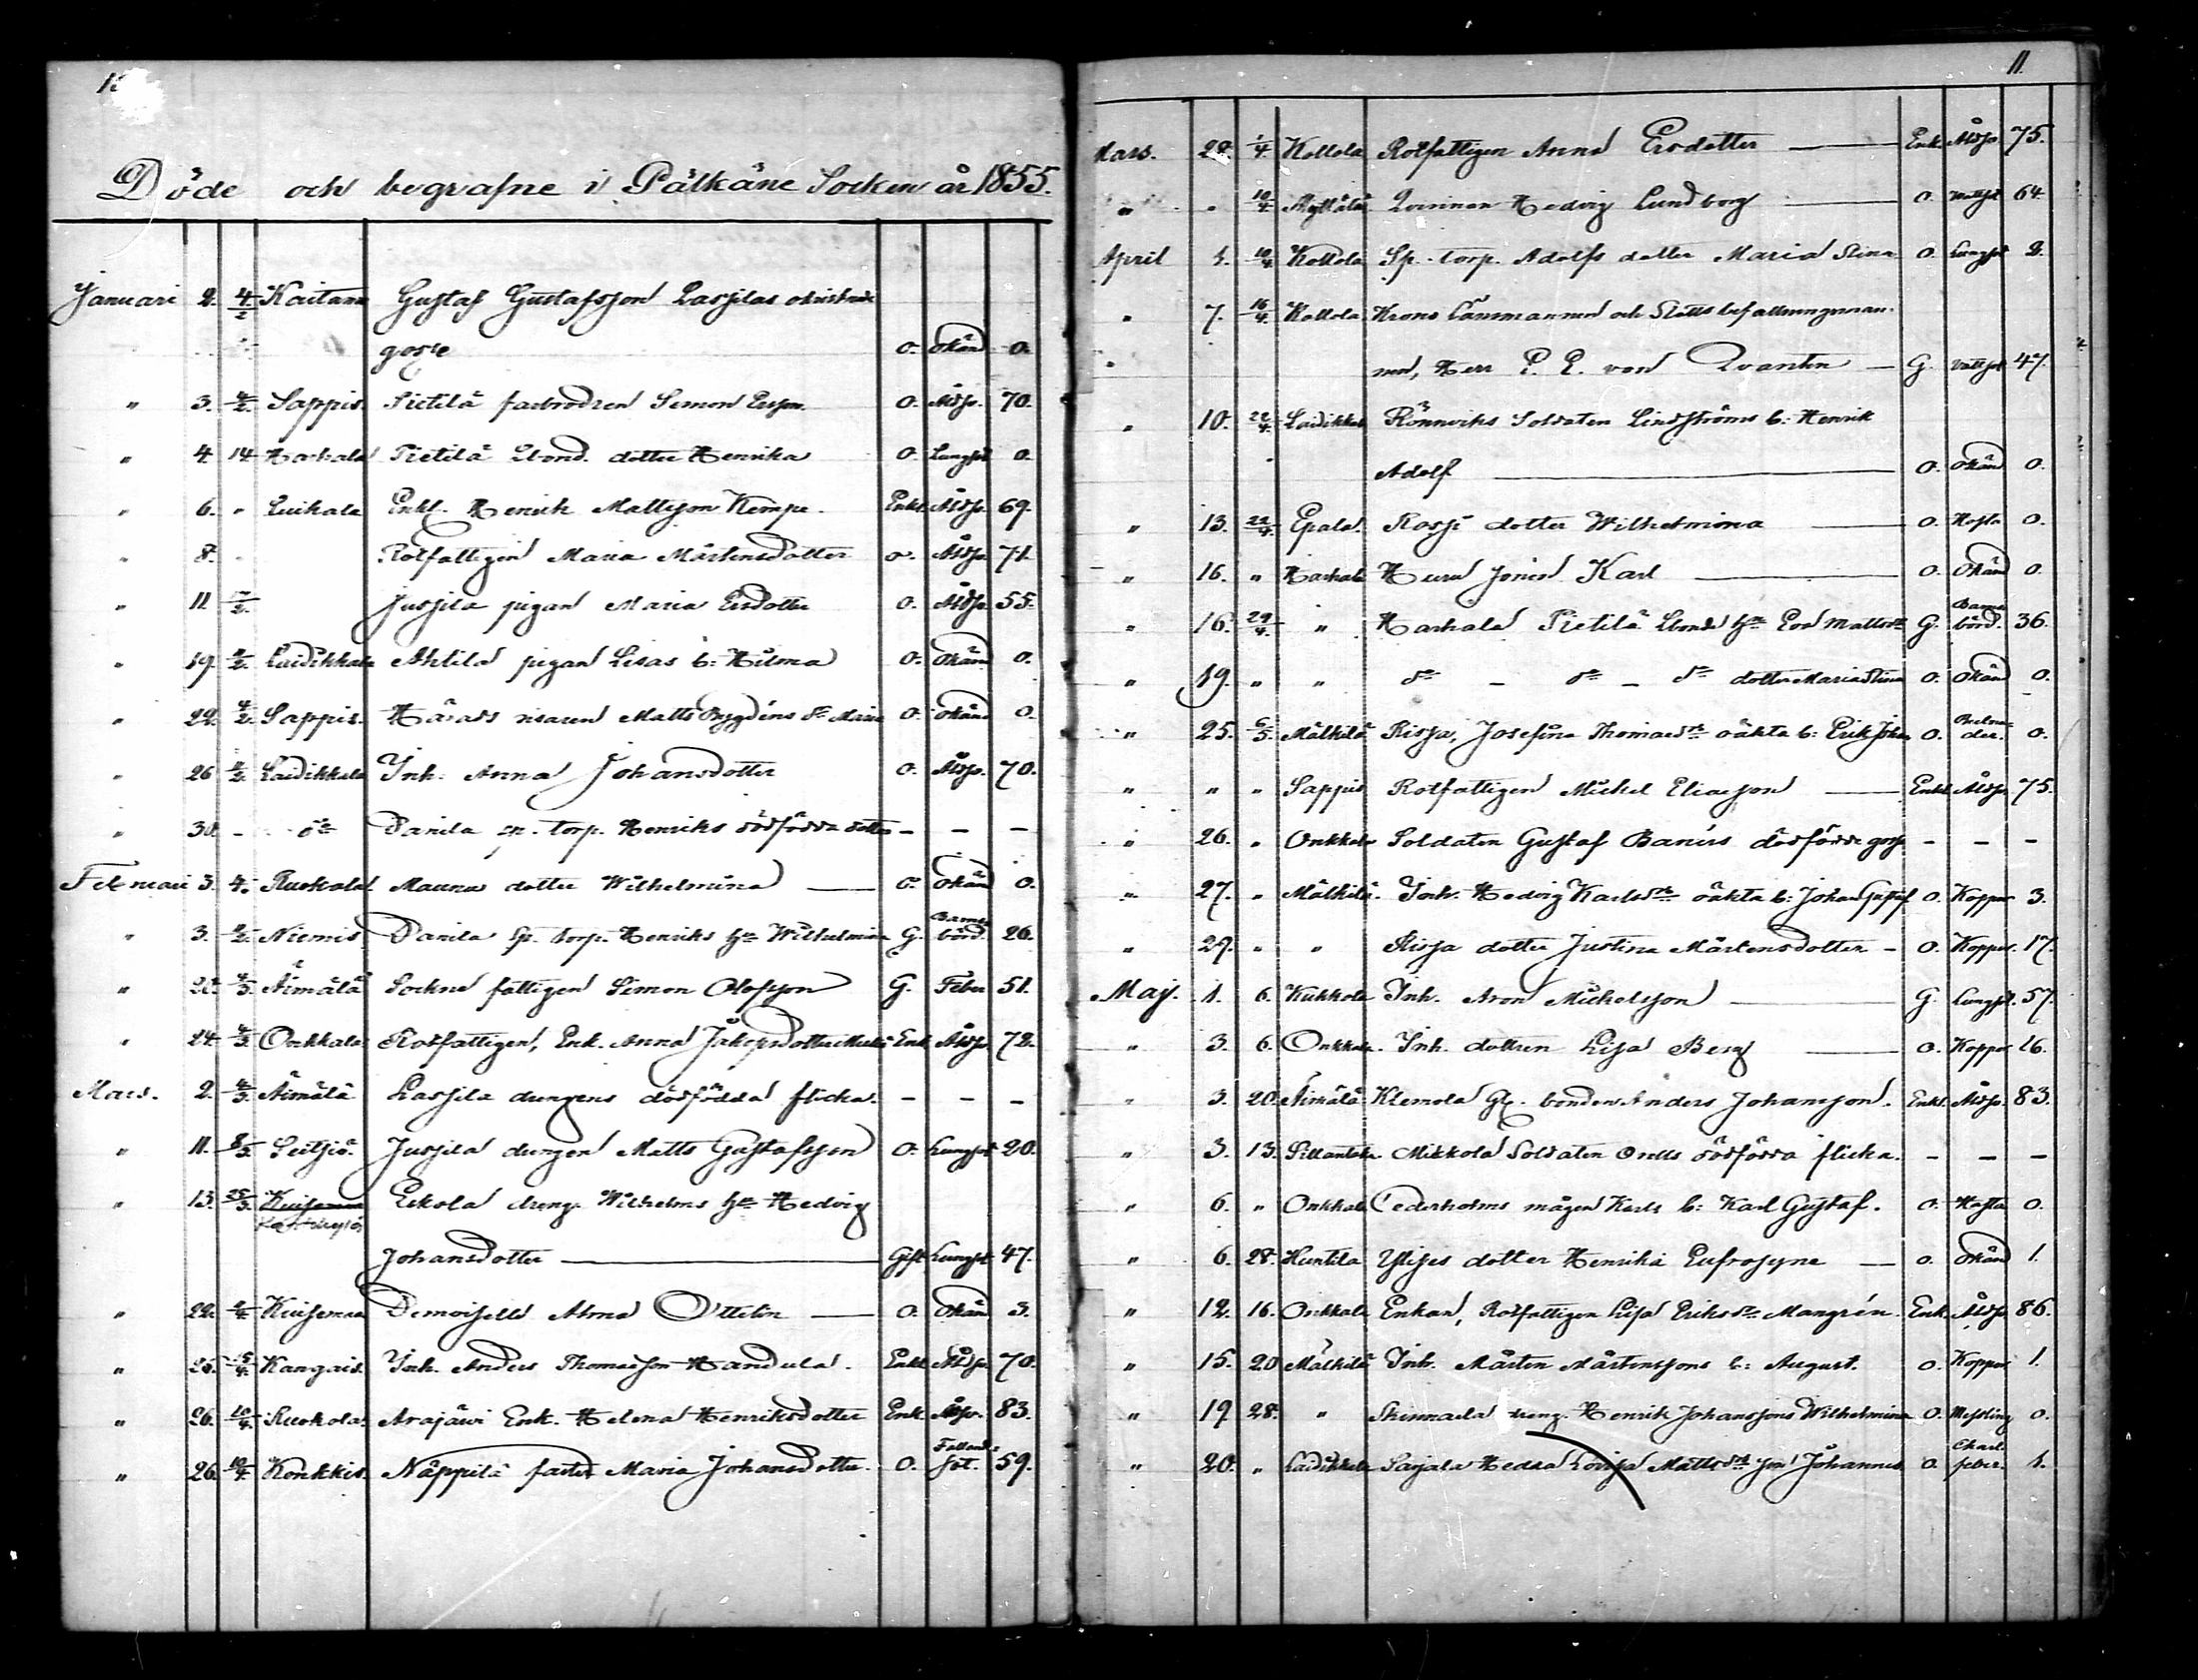 Döde och begrafne i Pälkäne Socken år 1855.
Januari 2. 4/2 Kaitama Gustaf Gustafsson Lassilas okristnade
gosse o. okänd o.
" 3. 4/2. Sappis. Pietilä farbrodren Simon Ersson. o. Åldr. 70.
" 4. 14 Harhala Pietilä Lbond. dotter Henrika o. Lungsot o.
" 6. " Luikala Enkl. Henrik Mattsson Kempe. Enkl. Åldr. 69.
" 8. " Rotfattigen Maria Mårtensdotter o. Åldr. 71.
" 11. Jussila pigan Maria Ersdotter o. Åldr. 55.
" 19. 4/2. Laidikkala Ahtila pigan Lisas b: Hilma o. okänd o.
" 22. 4/2. Sappis. Härads visaren Matts dr Maria o. okänd o.
" 26 4/2. Laidikkala Inh. Anna Johansdotter o. Åldr. 70.
" 30. - dto Danila sp. torp. Henriks dödfödda dotter - - -
Februari 3. 4. Ruokola Mauna dotter Wilhelmina o. okänd o.
" 3. Niemis Danila sp. torp. Henriks hu Wilhelmina G. Barnsbörd. 26.
" 20. 4/3. Äimälä Sockne fattigen Simon Olofsson G. Feber 51.
" 24. 4/3. Onkkala Rotfattigen, Enk. Anna Jakopsdotter Enk. Åldr. 72.
Mars. 2. 4/3. Äimälä Lassila drengens dödfödda flicka. - - -
" 11. 8/3. Seitsjö. Jussila drengen Matts Gustafsson o. Lungsot 20.
" 13. 25/3. Kuisema Eskola dreng. Wilhelms hu Hedvig
Johansdotter Gift Lungsot 47.
" 22. Kuisemaa Demoiselle Alma Ottelin o. okänd 3.
" 25. 15/4. Kangais. Inh. Anders Thomasson Handula. Enkl. Åldr. 70.
" 26. 10/4. Ruokola. Arajärvi Enk. Helena Henriksdotter Enk. Åldr. 83.
" 26. 10/4. Konkkis. Näppilä faster Maria Johansdotter. o. Fallandesot. 59.
11.
Mars. 28. 1/4. Kollola Rotfattigen Anna Ersdotter Enk. Åldr. 75.
" " 10/4. Myttälä Qvinnan Hedvig Lundborg o. Vattsot 64.
April 1. 10/4. Kollola Sp. torp. Adolfs dotter Maria Stina o. Lungsot 2.
" 7. 16/4. Kollola Krono Länsmannen och Slottsbefallningsman-
nen, Herr P. E. von Qvanten G. Vattsot 47.
" 10. 22/4. Laidikkala Rönnviks Soldaten Lindströms b: Henrik
Adolf o. okänd o.
" 13. 22/4. Epala. Rossi dotter Wilhelmina o. Hosta o.
" 16. " Harhala Heru Jonis Karl o. okänd o.
" 16. 29/4. " Harhala Pietilä Lbonde hu Eva Mattsdr G. Barnsbörd. 36.
" 19. " " dto - dto - dto dotter Maria Stina o. okänd o.
" 25. 6/5. Mälkilä Rissa, Josefina Thomasdr oäkta b: Erik Johan o. o.
" " " Sappis Rotfattigen Mickel Eliasson Enkl. Åldr. 75.
" 26. " Onkkala Soldaten Gustaf Baners dödfödde gosse - - -
" 27. " Mälkilä. Inh. Hedvig Karlsdr oäkta b: Johan Gustaf o. Koppor 3.
" 29. " " Rissa dotter Justina Mårtensdotter - o. Koppor. 17.
Maj. 1. 6. Kukkola Inh. Aron Mickelsson G. Lungsot. 57.
" 3. 6. Onkkala. Inh. dottren Lisa Berg o. Koppor 26.
" 3. 20. Äimälä Klemola Gl. bonden Anders Johansson. Enkl. Åldr. 83.
" 3. 13. Pillantaka Mikkola Soldaten Orells dödfödda flicka. - - -
" 6. " Onkkala Cederholms mågen Karls b: Karl Gustaf. o. Hosta o.
" 6. 28. Huntila Ylises dotter Henrika Eufrosyne o. okänd 1.
" 12. 16. Onkkala Enkan, Rotfattigen Lisa Eriksdr Mangrén. Enk. Åldr. 86.
" 15. 20 Mälkilä Inh. Mårten Mårtenssons b: August. o. Koppor 1.
" 19 28. " dreng. Henrik Johanssons Wilhelmina o. Messling o.
" 20. " Laidikkala Sarjala Hedda Lovisa Mattsdr son Johannes o. Skarl. feber. 1.